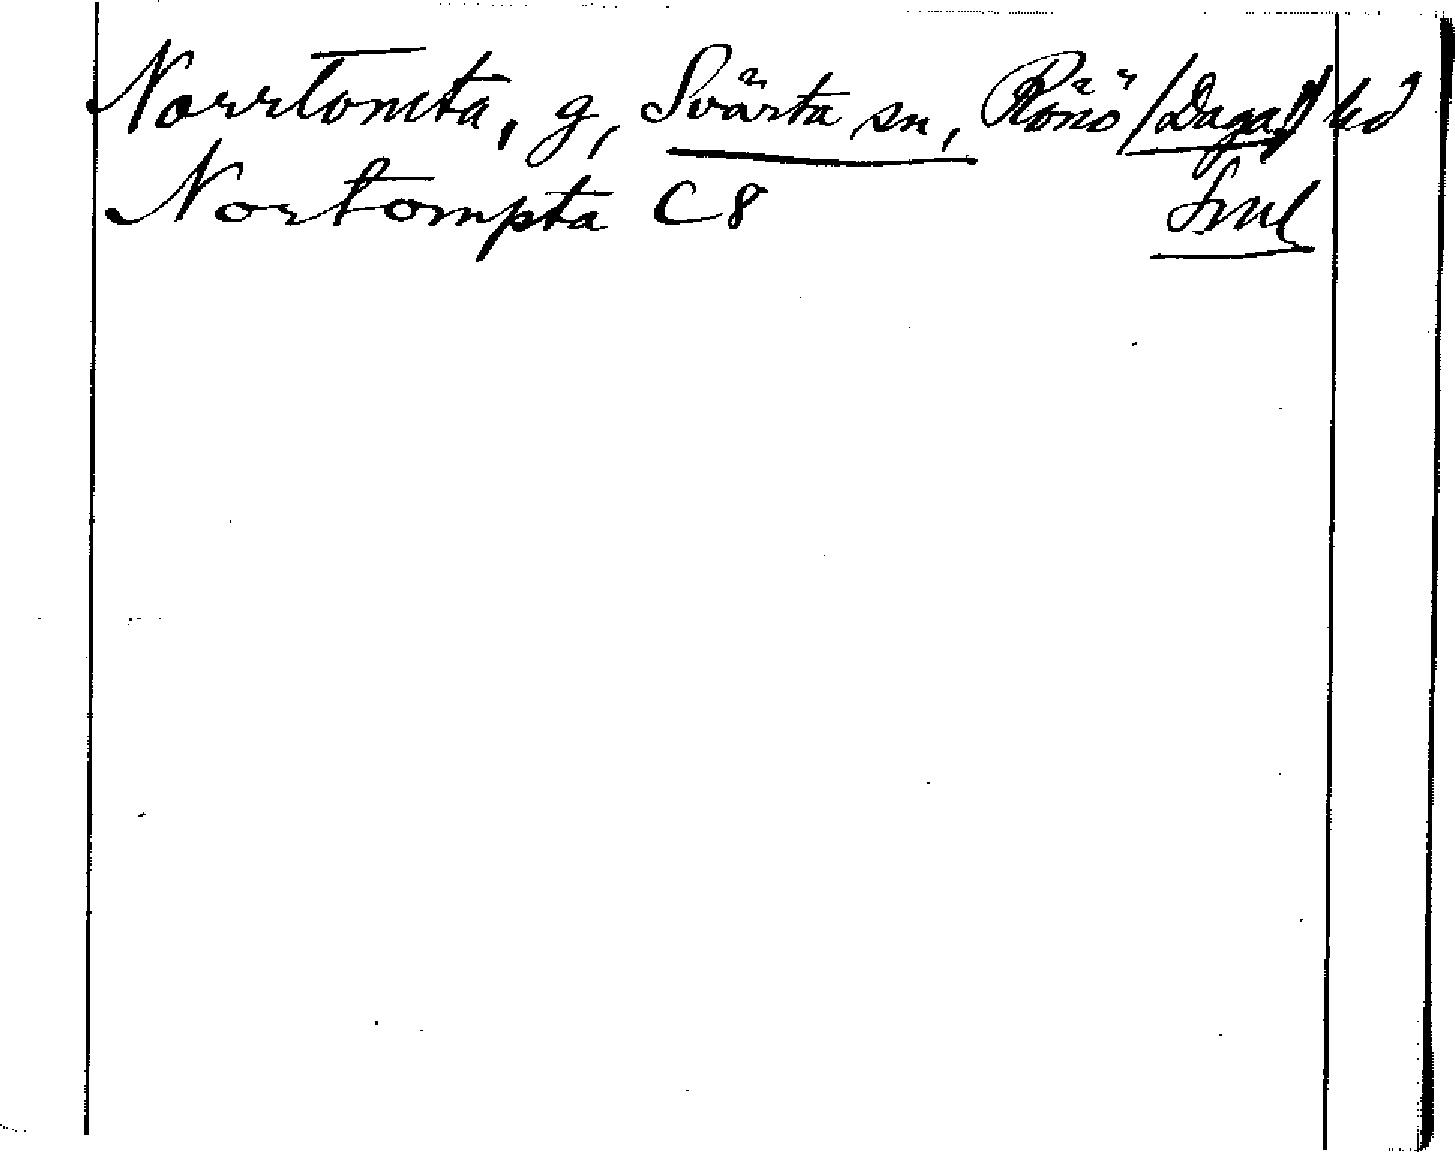 Norrtomta, g, Svärta sn, Rönö (Daga) hd
Nortompta C 8 Srml